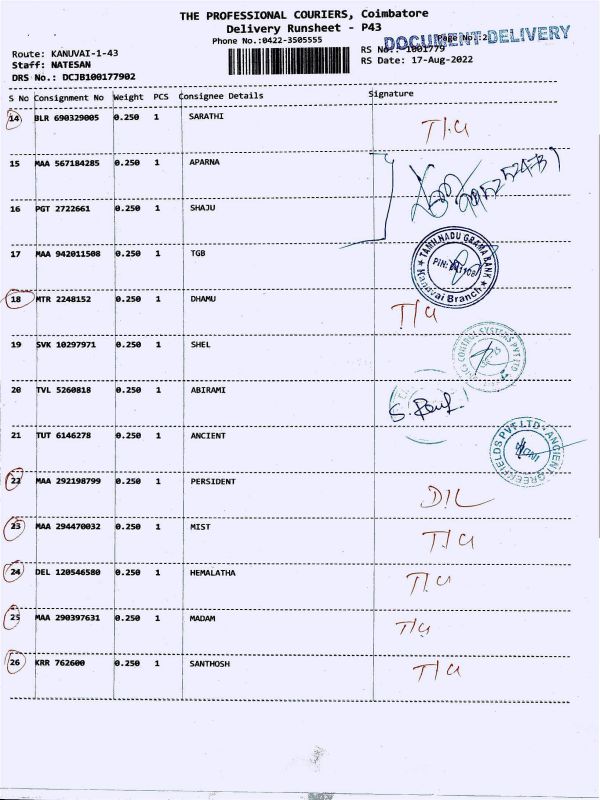 THE PROFESSIONAL COURIERS, Coimbatore
Delivery Runsheet - P43
Phone No.:0422-3505555
Page No.:2
DOCUMENT-DELIVERY
Route: KANUVAI-1-43
RS No.: 1001779
Staff: NATESAN
RS Date: 17-Aug-2022
DRS No.: DCJB100177902
S No Consignment No Weight PCS Consignee Details Signature
14 BLR 690329005 0.250 1 SARATHI
15 MAA 567184285 0.250 1 APARNA
16 PGT 2722661 0.250 1 SHAJU
17 MAA 942011508 0.250 1 TGB
TAMILNADU GRAMA BANK
Kanuvai Branch
18 MTR 2248152 0.250 1 DHAMU
19 SVK 10297971 0.250 1 SHEL
CONTROL SYSTEMS PVT LTD
20 TVL 5260818 0.250 1 ABIRAMI
21 TUT 6146278 0.250 1 ANCIENT
ANCIENT GREENFIELDS PVT LTD
22 MAA 292198799 0.250 1 PERSIDENT D/L
23 MAA 294470032 0.250 1 MIST
24 DEL 120546580 0.250 1 HEMALATHA
25 MAA 290397631 0.250 1 MADAM
26 KRR 762600 0.250 1 SANTHOSH